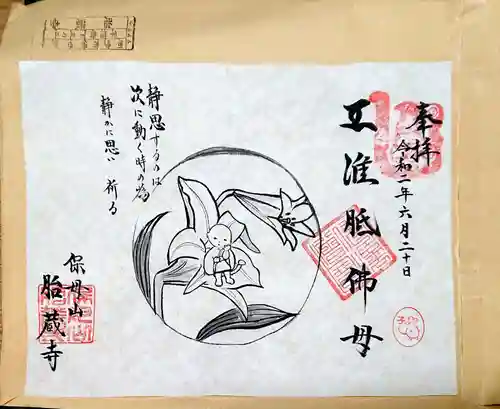 奉拝
令和二年六月二十日
准胝佛母
静思するのは
次に動く時の為
静かに思い 祈る
保母山
胎蔵寺